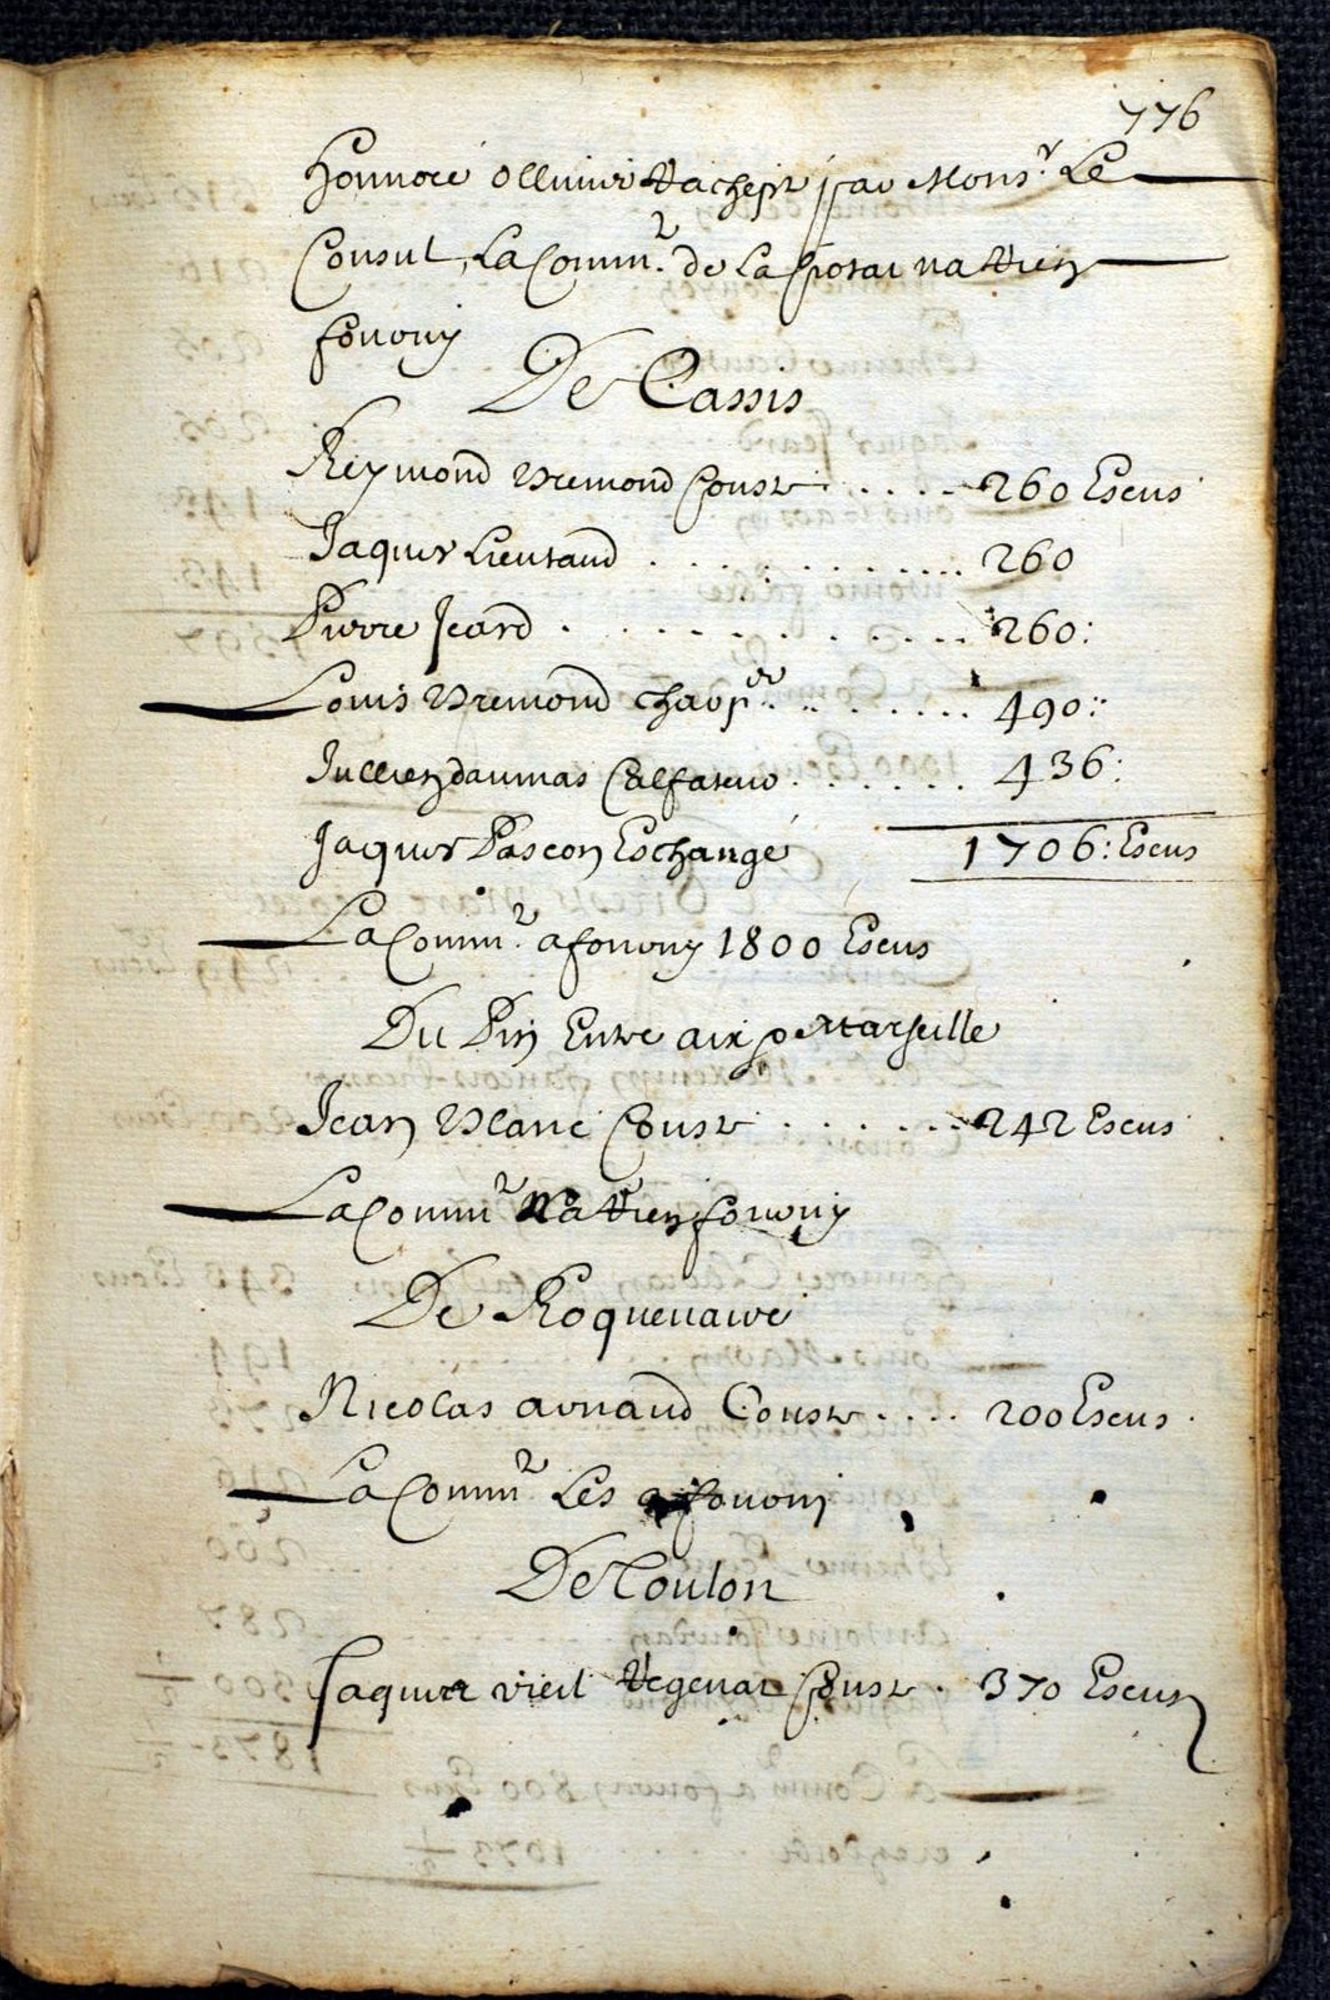 776
Honnoré Ollivier Rachepté par Monsr. Le
Consul, La Commté. de La Ciotat na Rien
fourny
De Cassis
Reymond Bremond Coust . . . . 260 Escus
Jaques Lieutaud . . . . . . . . . . 260
Pierre Jcard . . . . . . . . . . . 260:
Louis Bremond charper . . . . . . . 490:
Jullien daumas Calfateur . . . . . . 436:
Jaques Pascon Eschangé 1706: Escus
La Commté. a fourny 1800 Escus
Du Pin Entre aix et Marseille
Jean Blanc Coust . . . . . . 242 Escus
La Commté Na Rien fourny
De Roquevaire
Nicolas arnaud Couste . . . . 200 Escus
La Commté Les a fourny
De Toulon
Jaques vieil Coust . 370 Escus